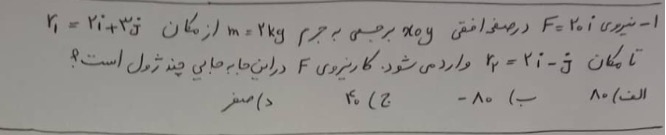 ۱- نیروی F=۲۰i در صفحه افقی xoy بر جسمی به جرم m=۲kg از مکان r₁ = ۲i+۳j
تا مکان r₂ = ۲i-j وارد می شود. کار نیروی F در این جابه جایی چند ژول است؟
الف) ۸۰ ب) ۸۰- ج) ۴۰ د) صفر